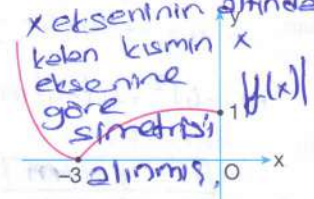 x ekseninin altında y
kalan kısmın x
eksenine |f(x)|
göre 1
simetrisi
-3 alınmış, O x